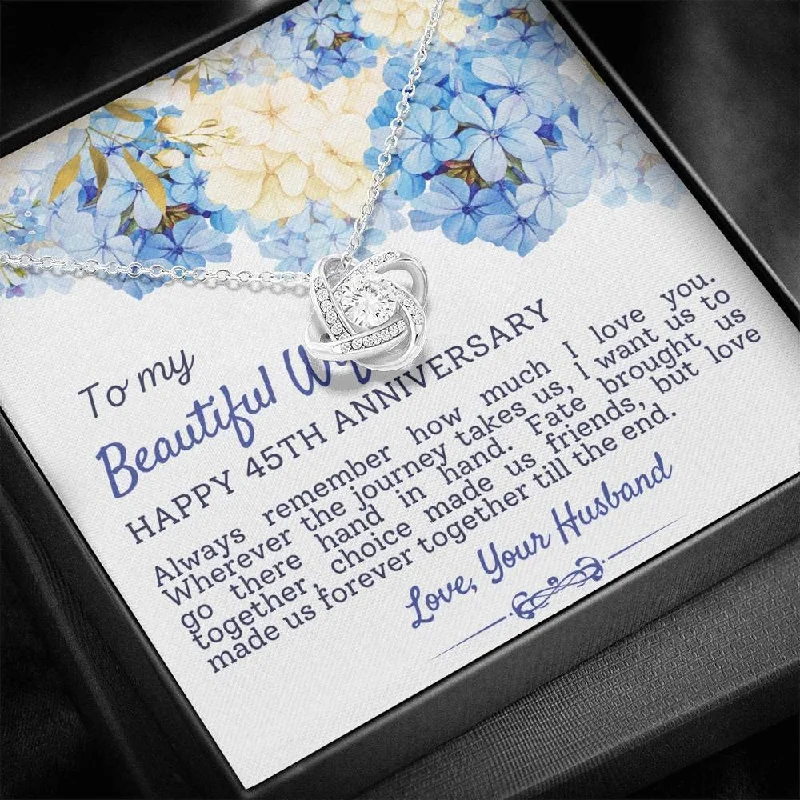 To my
Beautiful Wife
HAPPY 45TH ANNIVERSARY
Always remember how much I love you.
Wherever the journey takes us, I want us to
go there hand in hand. Fate brought us
together, choice made us friends, but love
made us forever together till the end.
Love, Your Husband